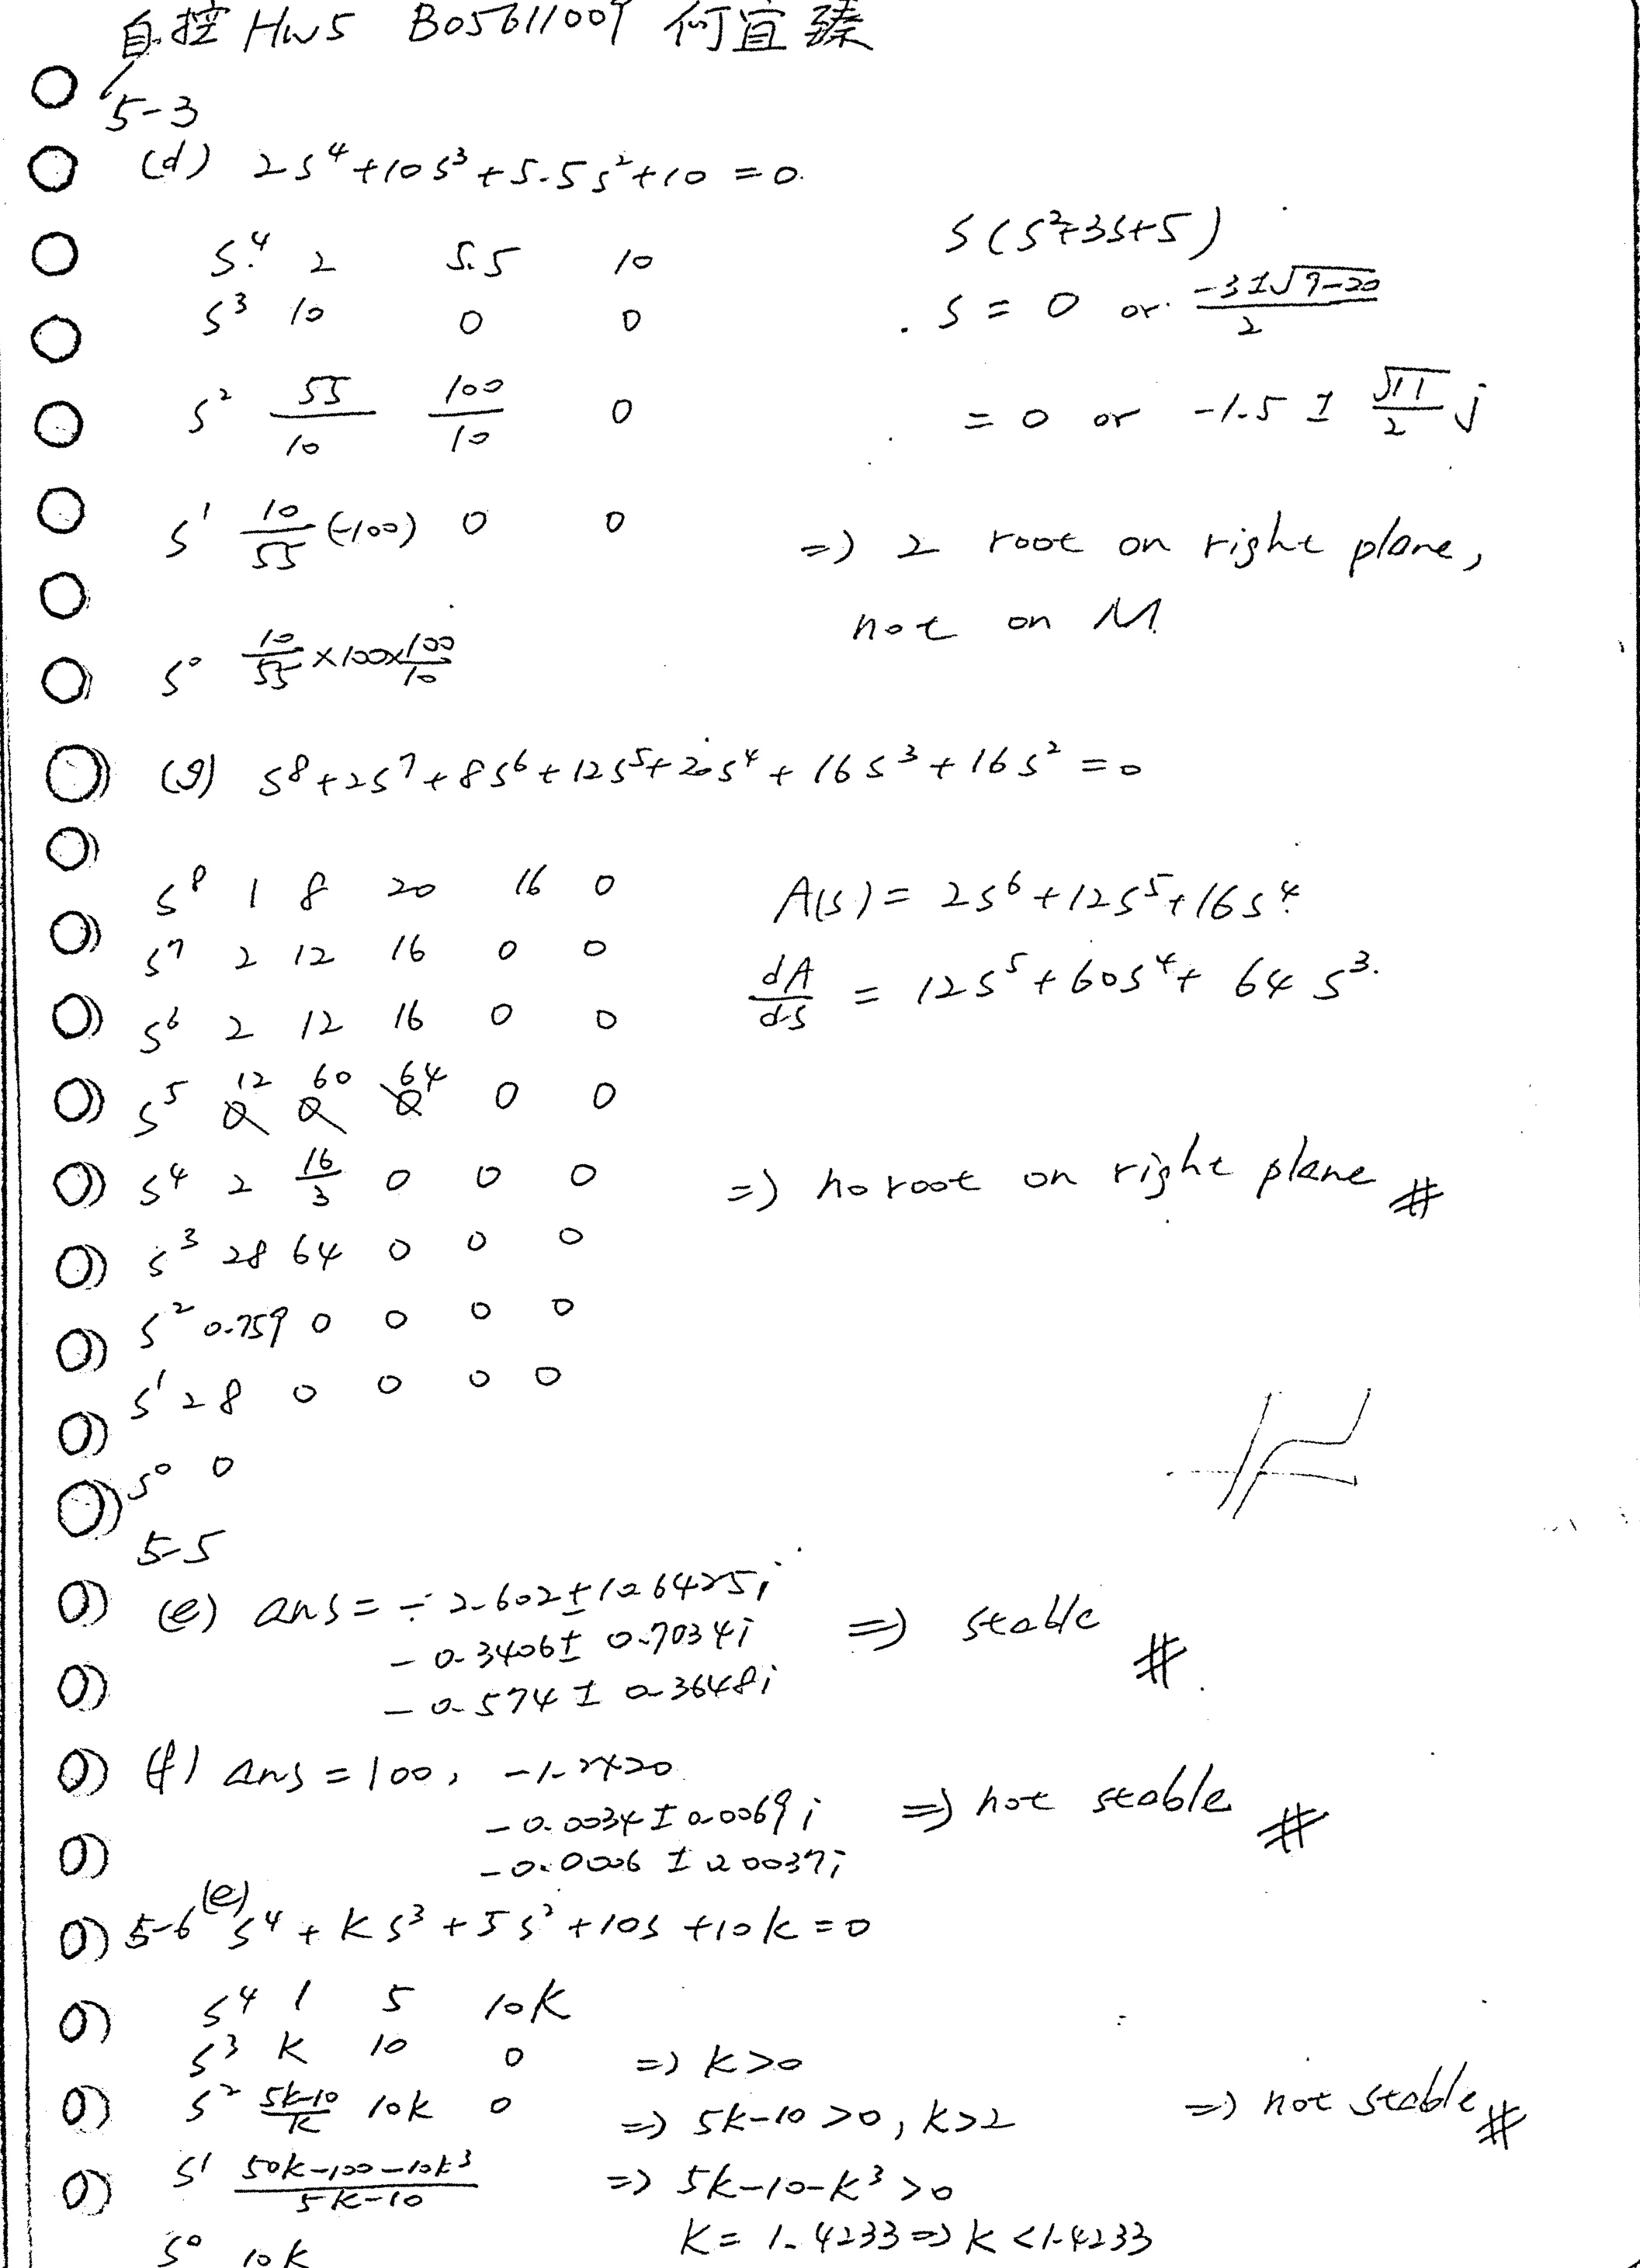 自控 HW5 B05611009 何宜臻
5-3
(d) 2s⁴+10s³+5.5s²+10=0.
s⁴ 2 5.5 10
s³ 10 0 0
s² 55/10 100/10 0
s¹ 10/55 (-100) 0 0
s⁰ 10/55 ×100×100/10
s(s²+3s+5)
s = 0 or (-3±√(9-20))/2
= 0 or -1.5 ± √11/2 j
=> 2 root on right plane,
not on
(g) s⁸+2s⁷+8s⁶+12s⁵+20s⁴+16s³+16s²=0
s⁸ 1 8 20 16 0
s⁷ 2 12 16 0 0
s⁶ 2 12 16 0 0
12 60 64
s⁵ 0 0 0 0 0
s⁴ 2 16/3 0 0 0
s³ 28 64 0 0 0
s² 0.759 0 0 0 0
s¹ 28 0 0 0 0
s⁰ 0
A(s) = 2s⁶+12s⁵+16s⁴
dA/ds = 12s⁵+60s⁴+64s³.
=> no root on right plane #
5-5
(e) ans = -2.602±
-0.3406± 0.7034i
-0.574 ± 0.3648i
=> stable #
(f) ans = 100, -1.2420
-0.0034±0.0069i
-0.0006 ± 0.0037i
=> not stable #
5-6 (e) s⁴+Ks³+5s²+10s+10k=0
s⁴ 1 5 10K
s³ K 10 0 => k>0
s² (5k-10)/k 10k 0 => 5k-10>0, k>2
s¹ (50k-100-10k³)/(5k-10) => 5k-10-k³>0
s⁰ 10k K= 1.4233=>k<1.4233
=> not stable #